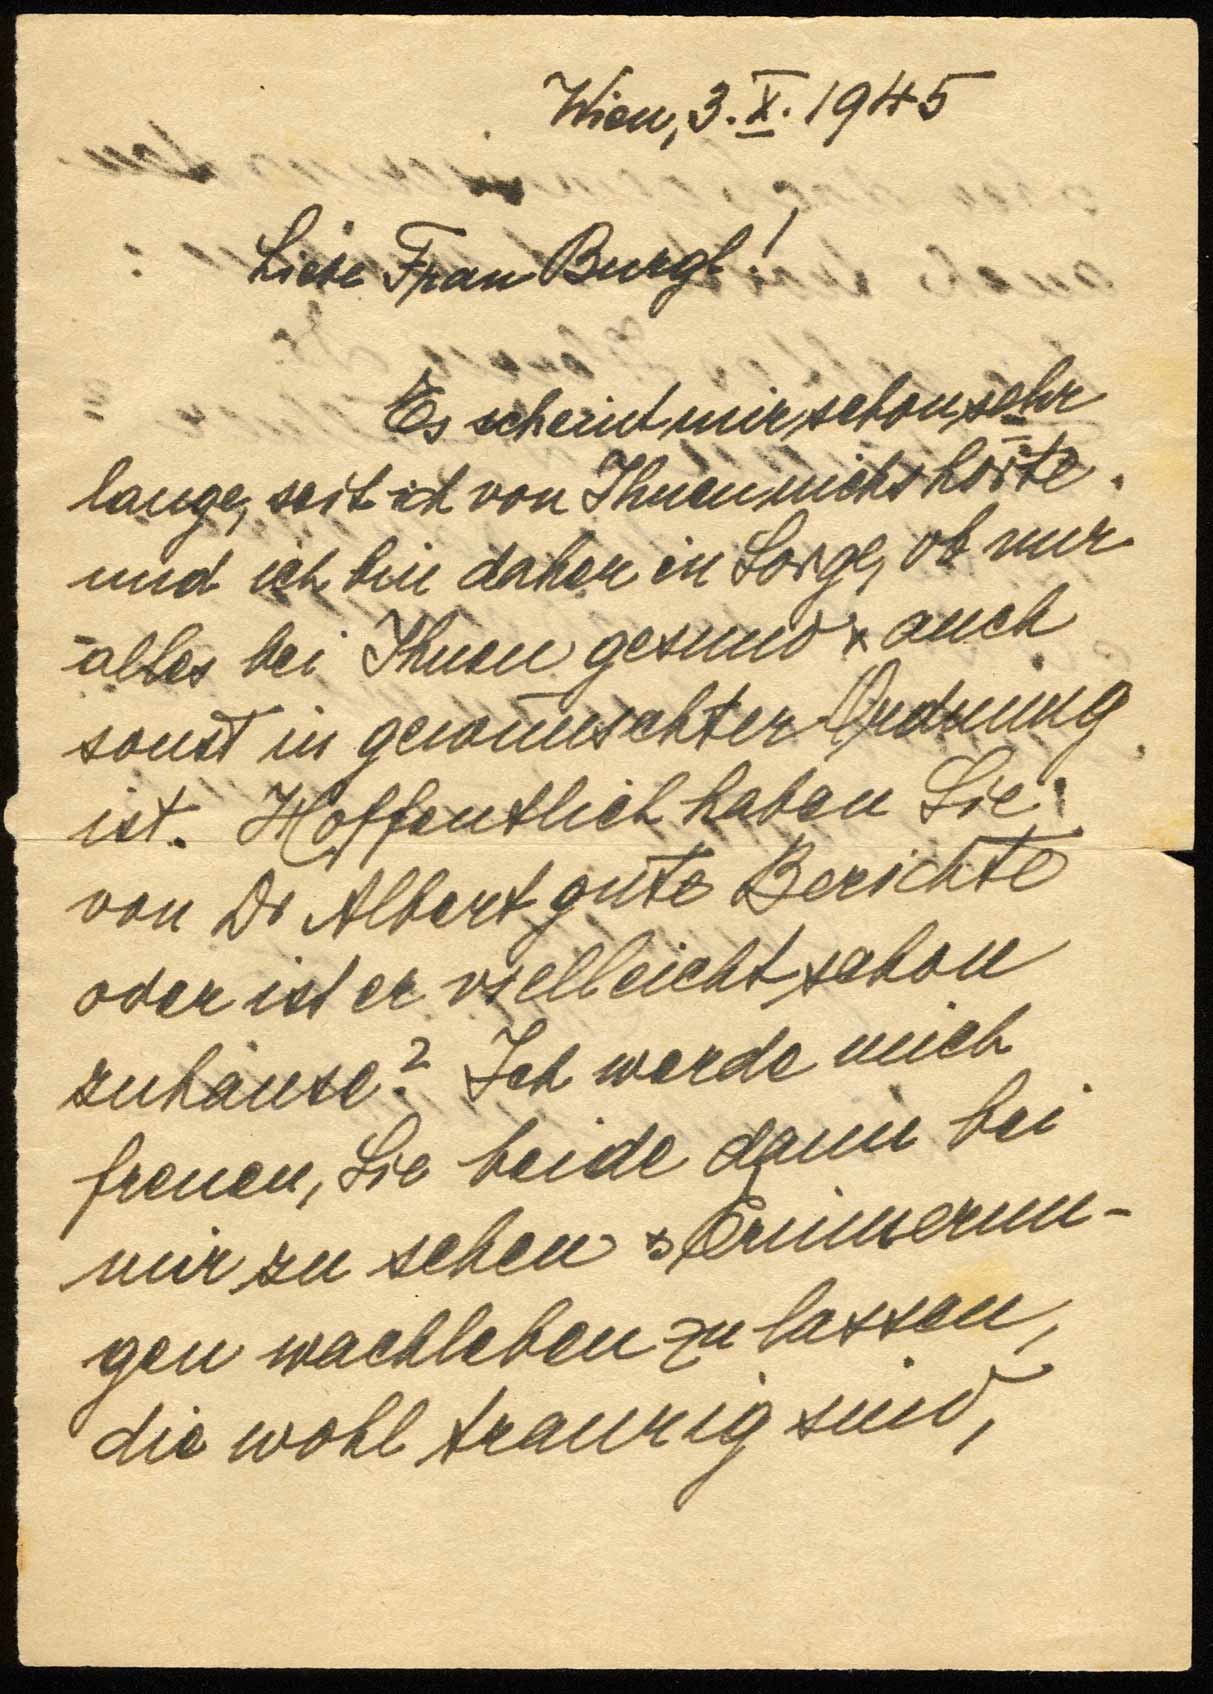 Wien, 3. X. 1945
Liebe Frau Burgl!
Es scheint mir schon sehr
lange, seit ich von Ihnen nichts hörte
und ich bin daher in Sorge, ob nur
alles bei Ihnen gesund & auch
sonst in gewünschter Ordnung
ist. Hoffentlich haben Sie
von Dr Albert gute Berichte
oder ist er vielleicht schon
zuhause? Ich werde mich
freuen, Sie beide dann bei
mir zu sehen & Erinnerun-
gen wachleben zu lassen,
die wohl traurig sind,